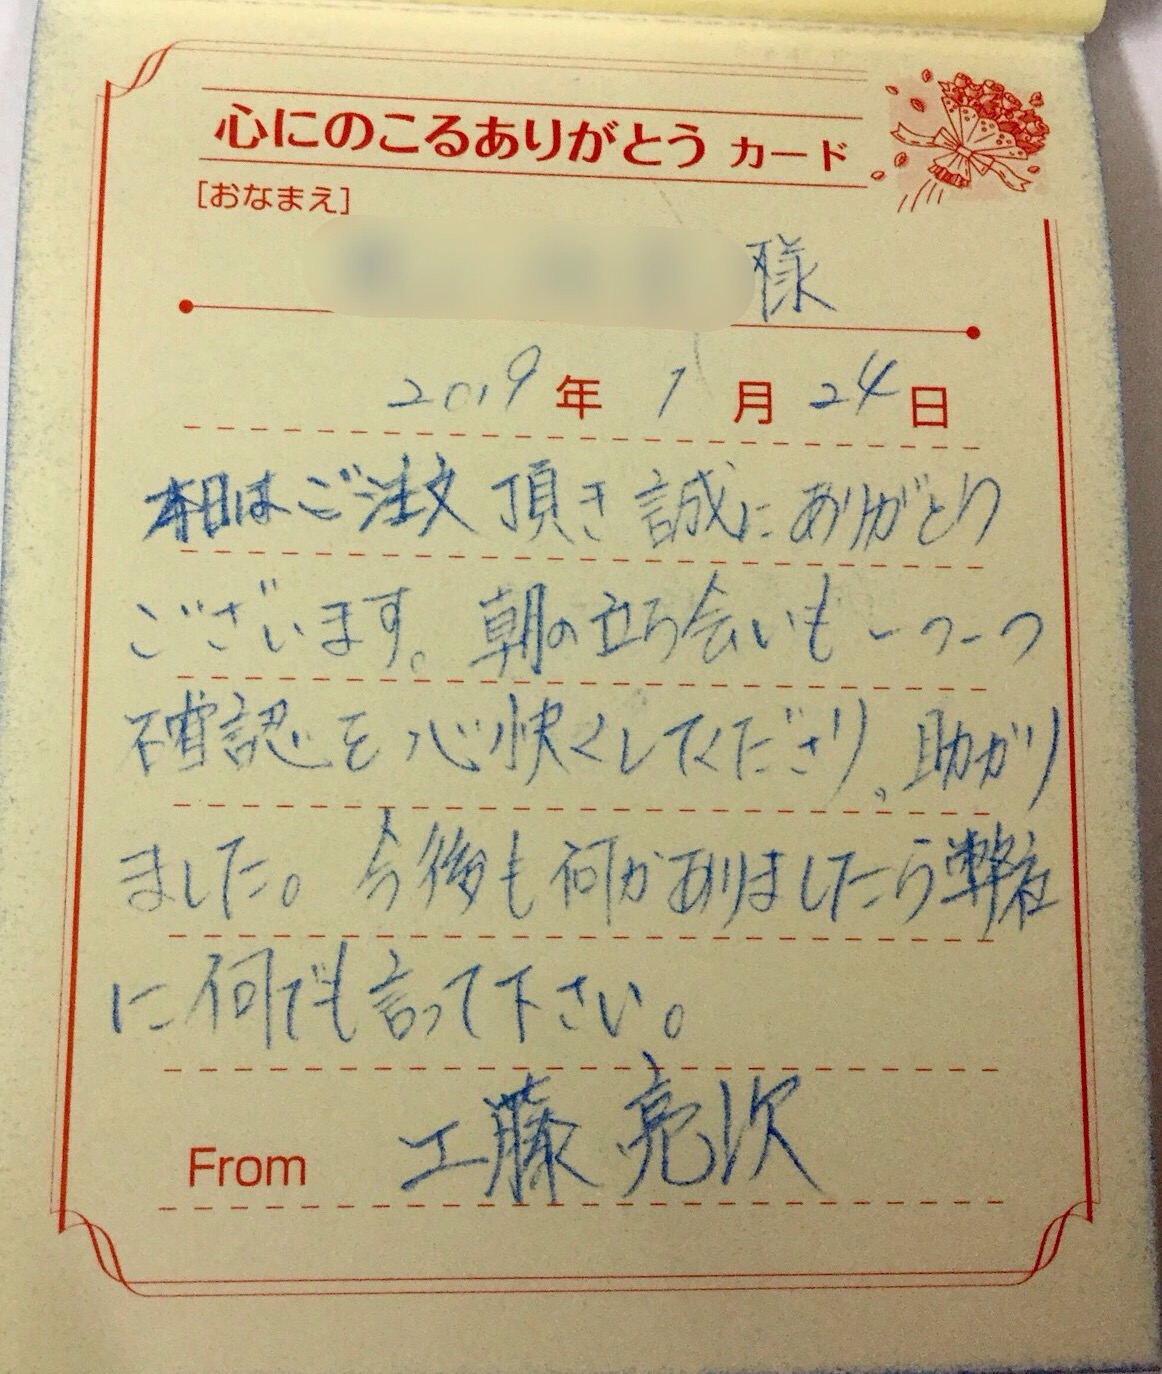 心にのこるありがとう カード
[おなまえ]
様
2019年 1月 24日
本日はご注文頂き誠にありがとう
ございます。朝の立ち会いも一つ一つ
確認を心快くしてくださり、助かり
ました。今後も何かありましたら弊社
に何でも言って下さい。
From 工藤亮次